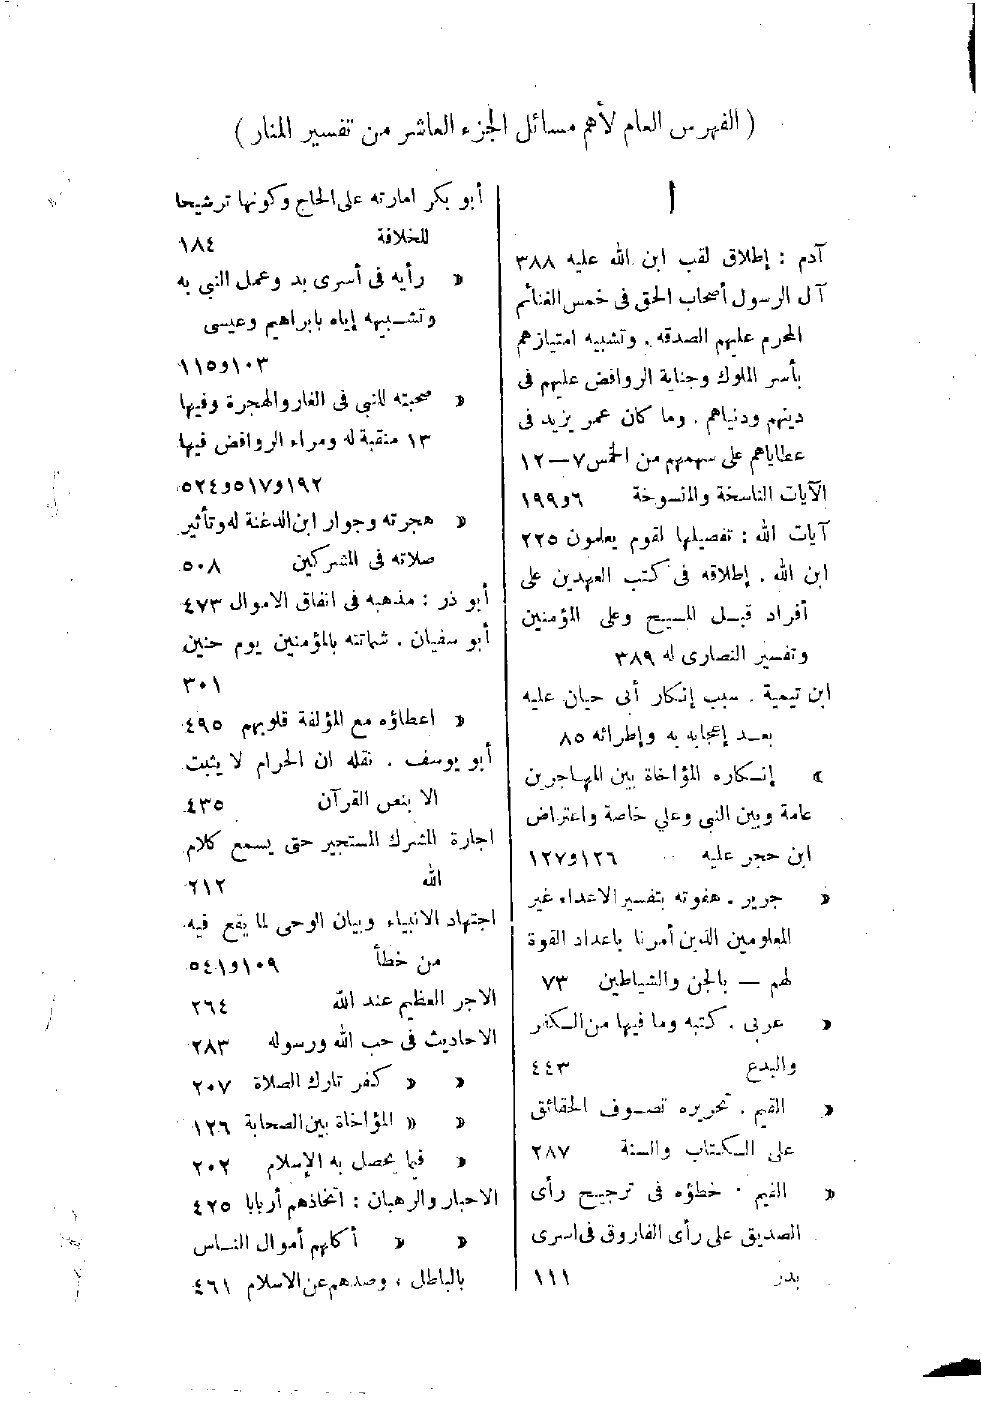 ( الفهرس العام لأهم مسائل الجزء العاشر من تفسير المنار )
ا
آدم : إطلاق لقب ابن الله عليه ٣٨٨
آل الرسول أصحاب الحق فى خمس الغنائم
المحرم عليهم الصدقه . وتشبيه امتيازهم
بأسر الملوك وجناية الروافض عليهم فى
دينهم ودنياهم . وما كان عمر يزيد فى
عطاياهم على سهمهم من الخمس ٧–١٢
الآيات الناسخة والمنسوخة ٦و١٩٩
آيات الله : تفصيلها لقوم يعلمون ٢٢٥
ابن الله . إطلاقه فى كتب العهدين على
أفراد قبل المسيح وعلى المؤمنين
وتفسير النصارى له ٣٨٩
ابن تيمية . سبب إنكار أبى حيان عليه
بعد إعجابه به وإطرائه ٨٥
» إنكاره المؤاخاة بين المهاجرين
عامة وبين النبى وعلي خاصة واعتراض
ابن حجر عليه ١٢٦و١٢٧
« جرير . هفوته بتفسير الاعداء غير
المعلومين الذين أمرنا باعداد القوة
لهم — بالجن والشياطين ٧٣
« عربى . كتبه وما فيها من الكفر
والبدع ٤٤٣
« القيم . تحريره تصوف الحقائق
على الكتاب والسنة ٢٨٧
« القيم . خطؤه فى ترجيح رأى
الصديق على رأى الفاروق فى اسرى
بدر ١١١
أبو بكر امارته على الحاج وكونها ترشيحا
للخلافة ١٨٤
« رأيه فى أسرى بد وعمل النبى به
وتشبيهه إياه بابراهيم وعيسى
١٠٣و١١٥
« صحبته للنبى فى الغار والهجرة وفيها
١٣ منقبة له ومراء الروافض فيها
١٩٢و٥١٧و٥٢٤
« هجرته وجوار ابن الدغنة له وتأثير
صلاته فى المشركين ٥٠٨
أبو ذر : مذهبه فى انفاق الاموال ٤٧٣
أبو سفيان . شماتته بالمؤمنين يوم حنين
٣٠١
« اعطاؤه مع المؤلفة قلوبهم ٤٩٥
أبو يوسف . نقله ان الحرام لا يثبت
الا بنص القرآن ٤٣٥
اجارة المشرك المستجير حتى يسمع كلام
الله ٢١٢
اجتهاد الانبياء وبيان الوحى لما يقع فيه
من خطأ ١٠٩و٥٤١
الاجر العظيم عند الله ٢٦٤
الاحاديث فى حب الله ورسوله ٢٨٣
« « كفر تارك الصلاة ٢٠٧
« « المؤاخاة بين الصحابة ١٢٦
« فيما يحصل به الإسلام ٢٠٢
الاحبار والرهبان : اتخاذهم أربابا ٤٢٥
« « أكلهم أموال الناس
بالباطل ، وصدهم عن الاسلام ٤٦١